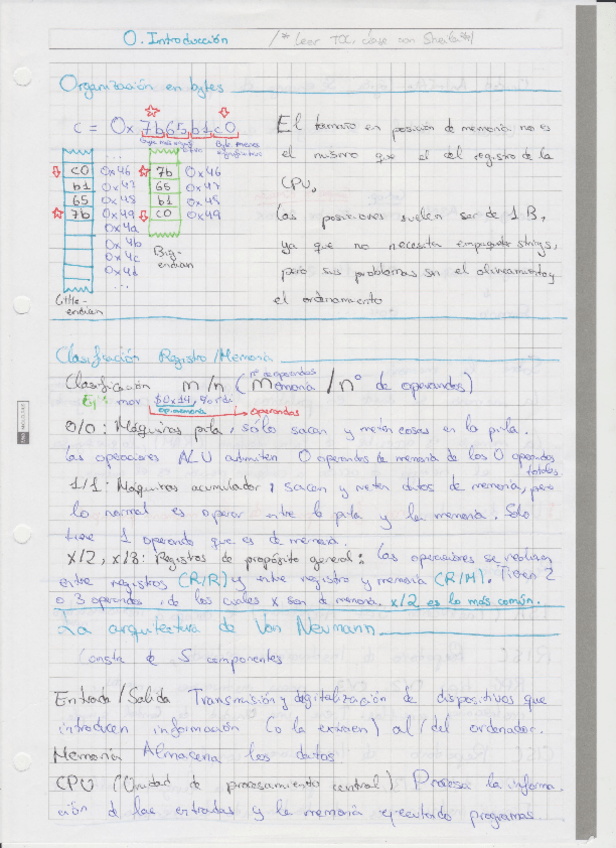 0. Introducción /* Leer TOC, clase con */
Organización en bytes
c = 0x 7b 65 b1 c0
byte más signif. byte menos
El tamaño en posición de memoria no es
el mismo que el del registro de la
CPU.
Las posiciones suelen ser de 1 B,
ya que no necesita empaquetar strings,
pero sus problemas son el alineamiento y
el ordenamiento
...
c0 0x46 7b 0x46
b1 0x47 65 0x47
65 0x48 b1 0x48
7b 0x49 c0 0x49
0x4a
0x4b
0x4c
0x4d
...
Little-endian
Big-endian
Clasificación Registro/Memoria
nº operandos
Clasificación m/n (Memoria / nº de operandos)
Ej: mov $0x14,
op. memoria operandos
0/0: Máquinas pila, sólo sacan y meten cosas en la pila.
Las operaciones ALU admiten 0 operandos de memoria de los 0 operandos
totales
1/1: Máquinas acumulador: sacan y meten datos de memoria, pero
lo normal es operar entre la pila y la memoria. Sólo
tiene 1 operando que es de memoria.
x/2, x/3: Registros de propósito general: Las operaciones se realizan
entre registros (R/R) y entre registro y memoria (R/M). Tienen 2
o 3 operandos, de los cuales x son de memoria. x/2 es lo más común.
La arquitectura de Von Neumann
Consta de 5 componentes
Entrada/Salida Transmisión y digitalización de dispositivos que
introducen información (o la extraen) al/del ordenador.
Memoria Almacena los datos
CPU (Unidad de procesamiento central) Procesa la informa
ción d las entradas y la memoria ejecutando programas.